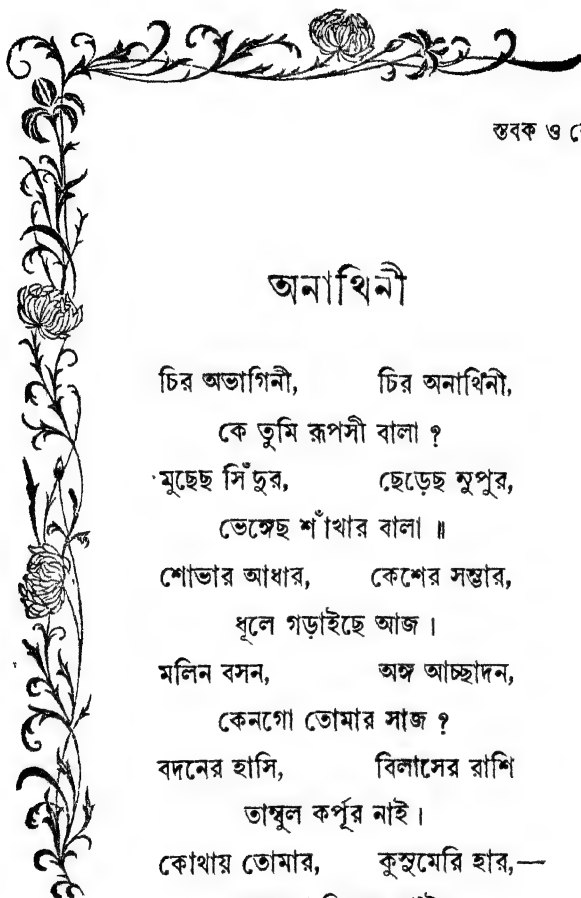 স্তবক ও
অনাথিনী
চির অভাগিনী, চির অনাথিনী,
কে তুমি রূপসী বালা ?
মুছেছ সিঁদুর, ছেড়েছ নুপুর,
ভেঙ্গেছ শাঁখার বালা ॥
শোভার আধার, কেশের সম্ভার,
ধূলে গড়াইছে আজ ।
মলিন বসন, অঙ্গ আচ্ছাদন,
কেনগো তোমার সাজ ?
বদনের হাসি, বিলাসের রাশি
তাম্বুল কর্পূর নাই ।
কোথায় তোমার, কুসুমেরি হার,—